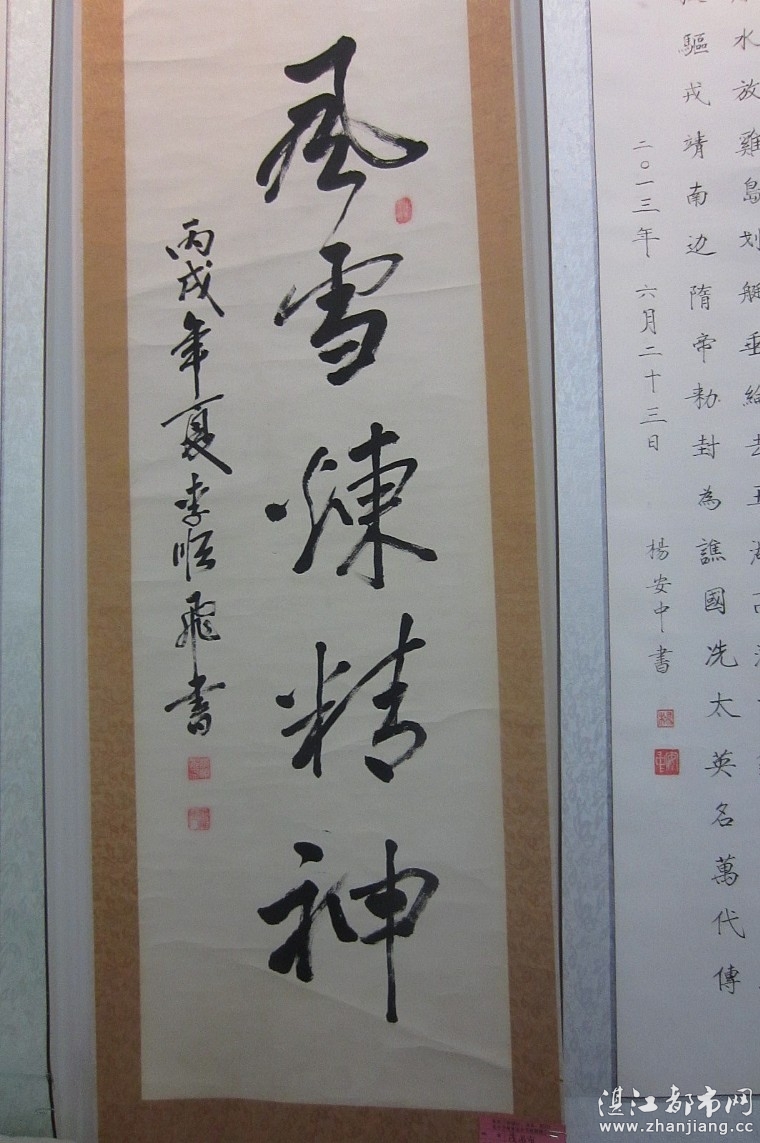 風雪煉精神
丙戌年夏李順飛書
水放雞島划艇垂綸去五湖
驅戎靖南边隋帝勅封為譙國冼太英名萬代傳
二〇一三年六月二十三日 楊安中書
湛江都市网
www.zhanjiang.cc